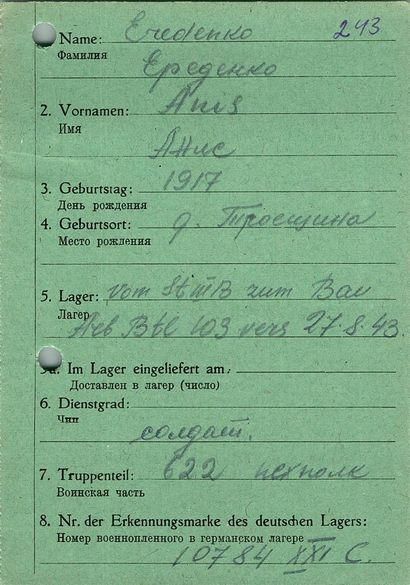 Name: Eredenko 243
Фамилия
Ереденко
2. Vornamen: Anis
Имя
Анис
3. Geburtstag: 1917
День рождения
4. Geburtsort: д. Тросщина
Место рождения
5. Lager: vom St III B zum Bau
Лагер
Arb Btl 103 vers 27.8.43.
5a. Im Lager eingeliefert am:
Доставлен в лагер (число)
6. Dienstgrad:
Чин
солдат.
7. Truppenteil: 622 пехполк
Воинская часть
8. Nr. der Erkennungsmarke des deutschen Lagers:
Номер военнопленного в германском лагере
10784 XXI C.